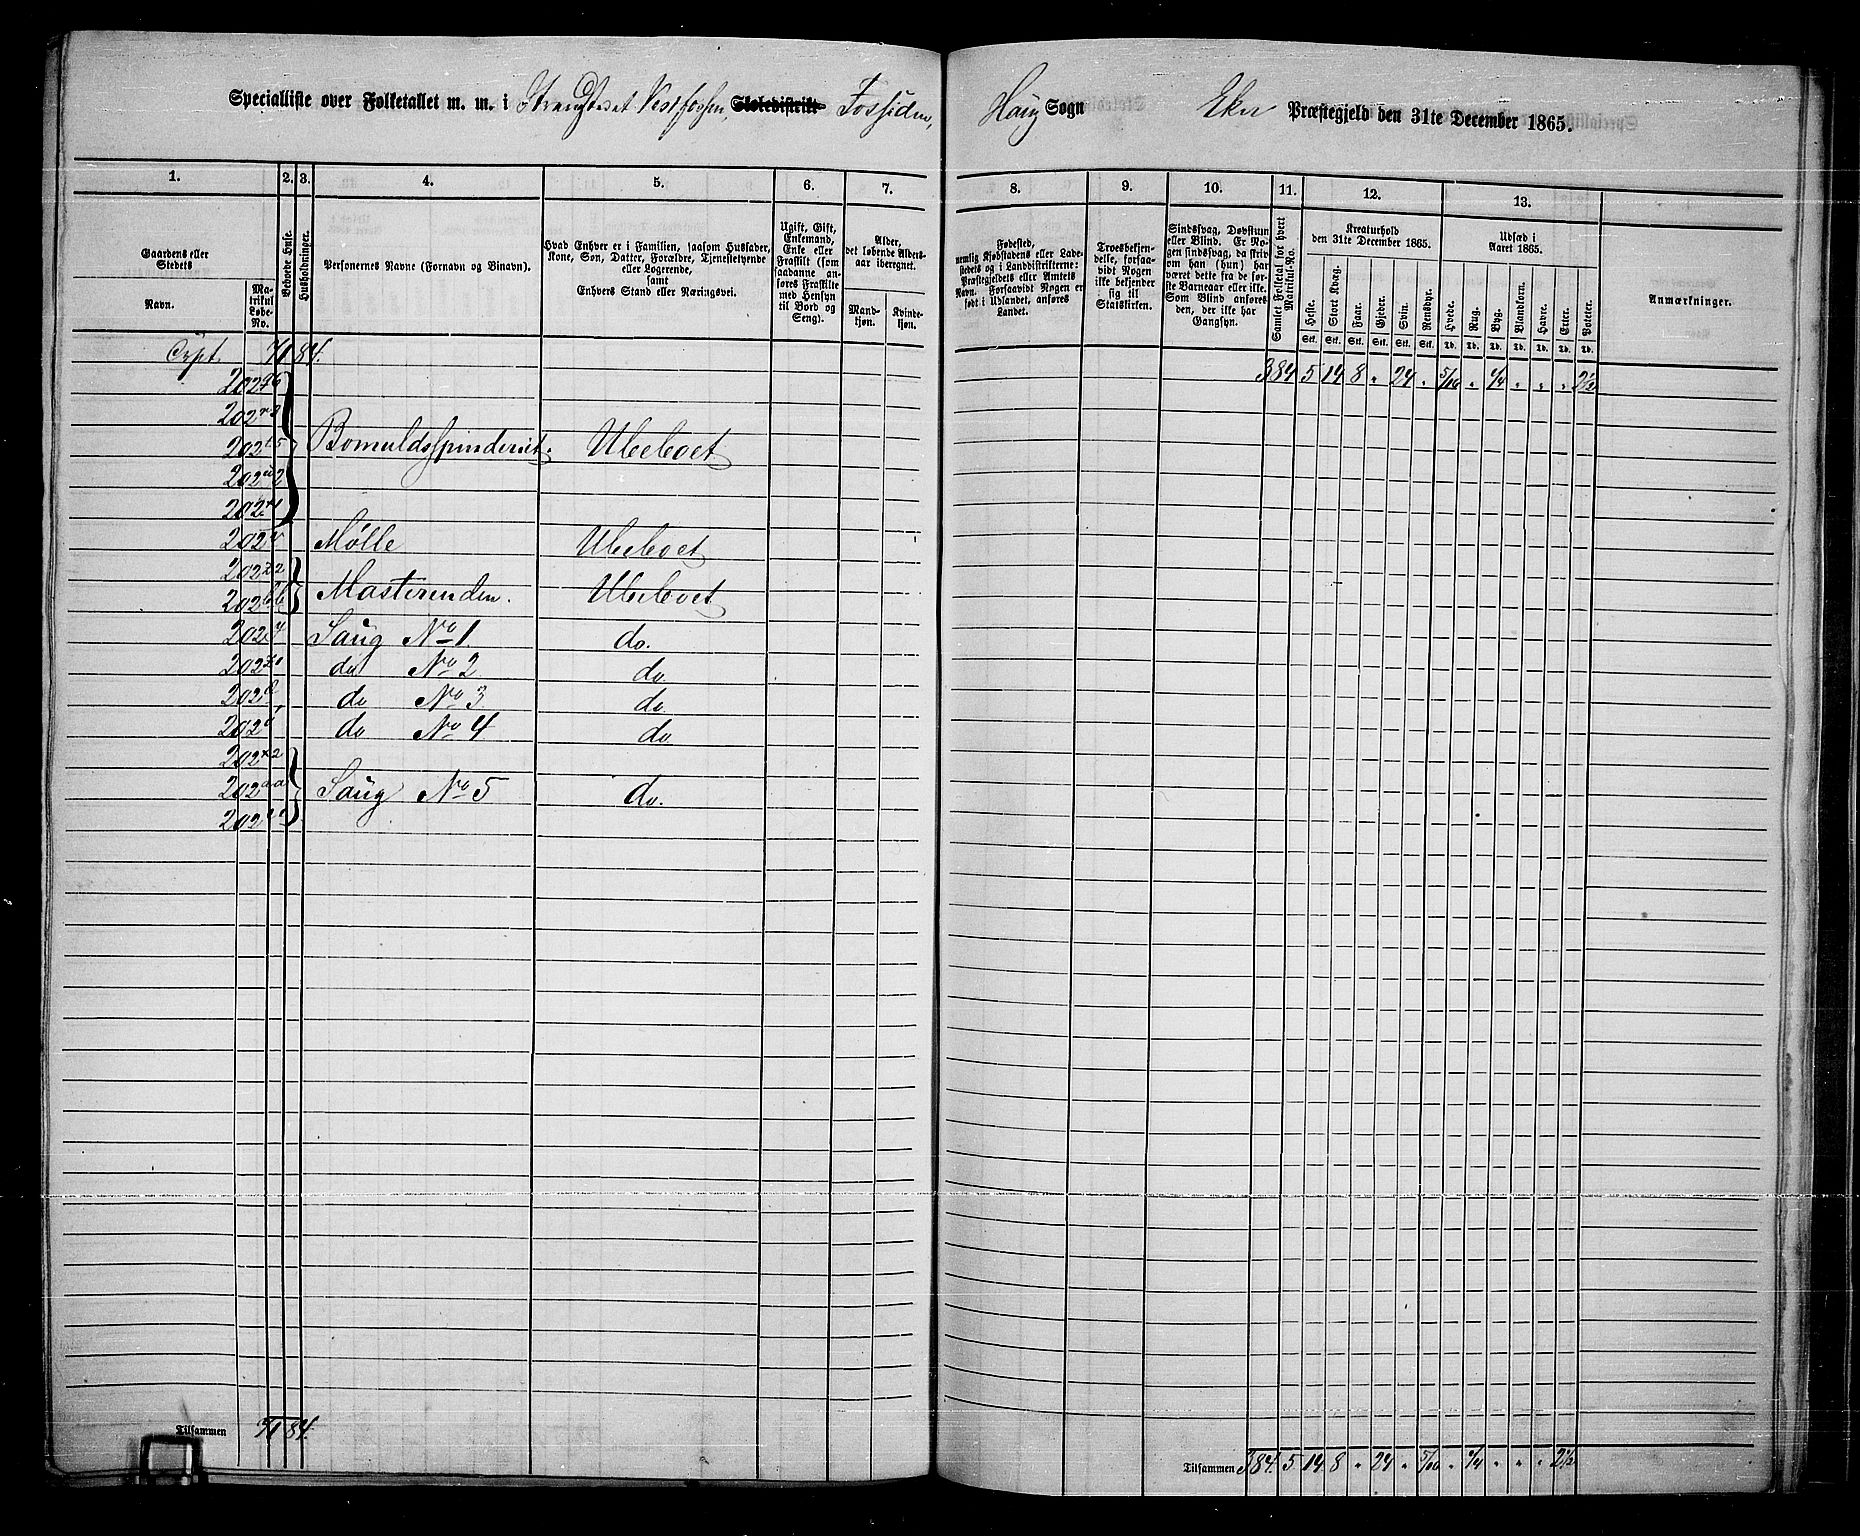 Specialliste over Folketallet m. m. i Strandstedet Vestfossen, Skoledistrikt Fossiden,
Haug Sogn Eker Præstegjeld den 31te December 1865.
1. 2. 3. 4. 5. 6. 7.
8. 9. 10. 11. 12. 13.
Gaardens eller Stedets
Navn.
Matrikul Løbe-No.
Beboede Huse.
Husholdninger.
Personernes Navne (Fornavn og Binavn).
Hvad Enhver er i Familien, saasom Husfader, Kone, Søn, Datter, Forældre, Tjenestetyende eller Logerende,
samt
Enhvers Stand eller Næringsvei.
Ugift, Gift, Enkemand, Enke eller Fraskilt (som saadanne anføres Fraskilte med Hensyn til Bord og Seng).
Alder, det løbende Aldersaar iberegnet.
Mandkjøn. Kvindekjøn.
Fødested,
nemlig Kjøbstadens eller Ladestedets og i Landdistrikterne: Præstegjeldets eller Amtets Navn. Forsaavidt Nogen er født i Udlandet, anføres Landet.
Troesbekjendelse, forsaavidt Nogen ikke bekjender sig til Statskirken.
Sindssvag, Døvstum eller Blind. Er Nogen sindssvag, da skrives om han (hun) har været dette fra de første Barneaar eller ikke. Som Blind anføres den, der ikke har Gangsyn.
Samlet Folketal for hvert Matrikul-No.
Kreaturhold den 31te December 1865.
Heste. Stort Kvæg. Faar. Gjeder. Svin. Rensdyr.
Stk. Stk. Stk. Stk. Stk. Stk.
Udsæd i Aaret 1865.
Hvede. Rug. Byg. Blandkorn. Havre. Erter. Poteter.
Td. Td. Td. Td. Td. Td. Td.
Anmærkninger.
71 84.
384 5 14 8 " 24 " 5/10 " 1/4 " " " 2½
Bomuldsspinderiet. Ubeboet
Mølle Ubeboet
Masterenden. Ubeboet
Saug No 1. do.
do No 2 do.
do No 3 do.
do No 4 do.
Saug No 5 do.
Tilsammen 71 84.
Tilsammen 384. 5 14 8 " 24 " 5/10 " 1/4 " " " 2½